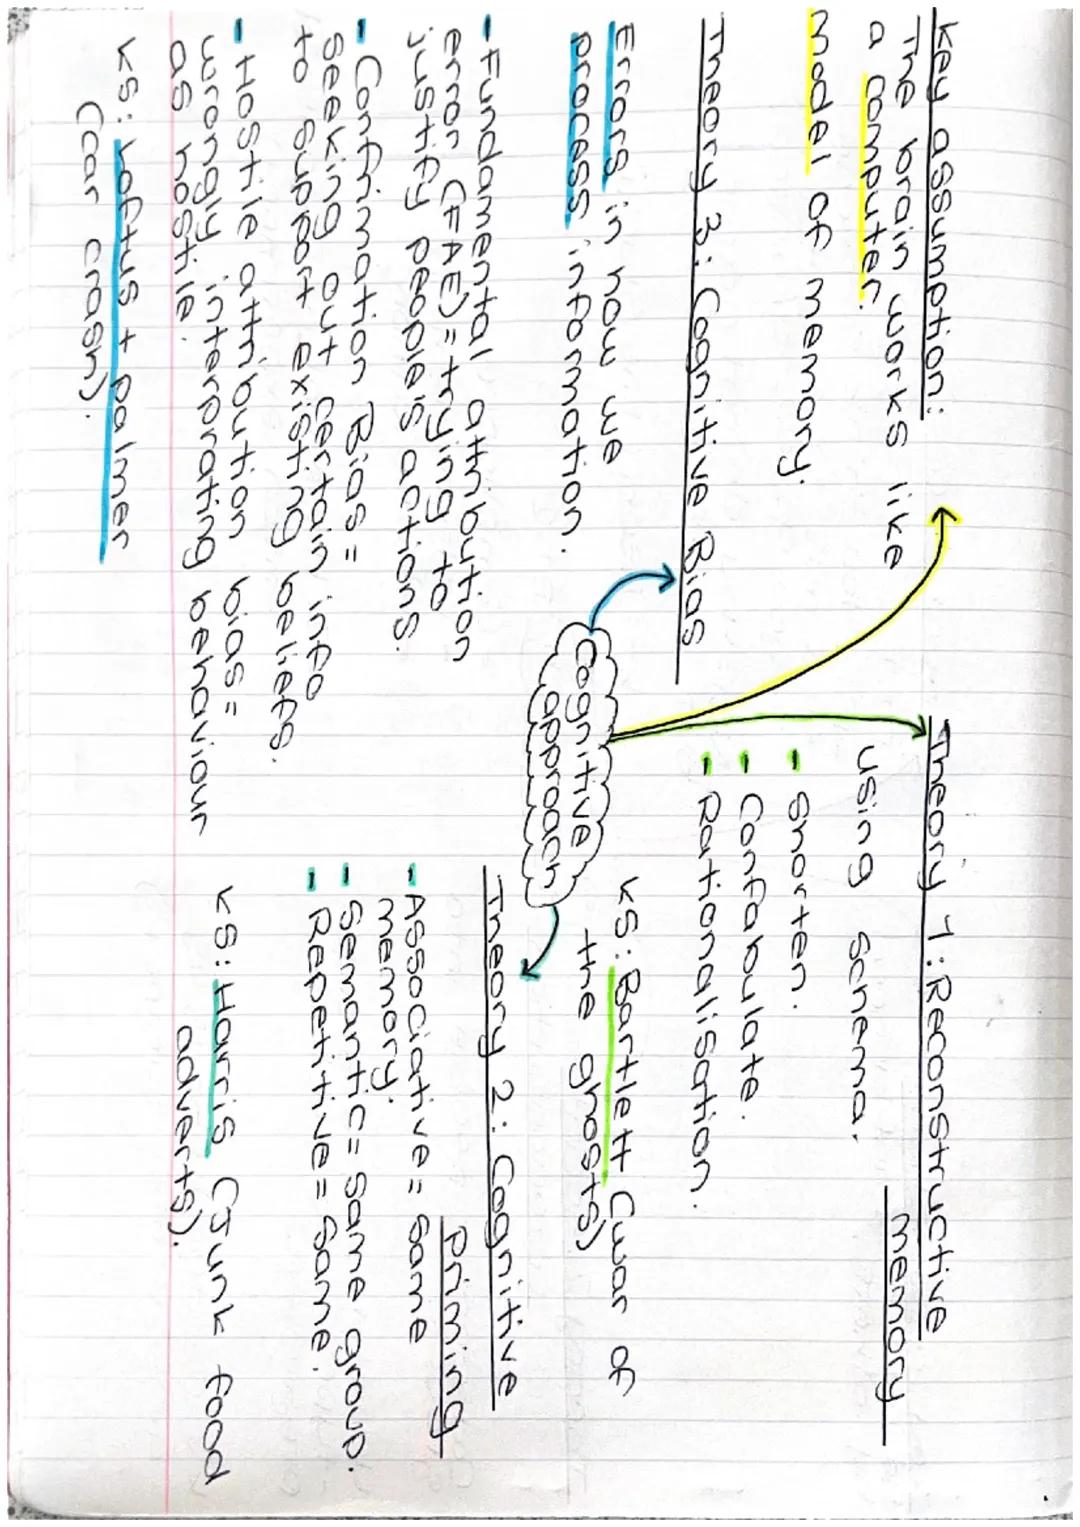 Key assumption:
The brain works like
a computer.
model of memory.
Theory 1: Reconstructive
memory
using schema.
- Shorten.
- Confabulate.
- Rationalisation.
KS: Bartlett (war of
the ghosts)
Cognitive
approach
Theory 3: Cognitive Bias
Errors in how we
process information.
- Fundamental attribution
error (FAE) = trying to
justify people's actions.
- Confirmation Bias =
Seeking out certain info
to support existing beliefs.
- Hostile attribution bias =
wrongly interprating behaviour
as hostile.
KS: Loftus + palmer
(car crash).
Theory 2: Cognitive
priming
- Associative = same
memory.
- Semantic = same group.
- Repetitive = same.
KS: Harris (Junk food
adverts).